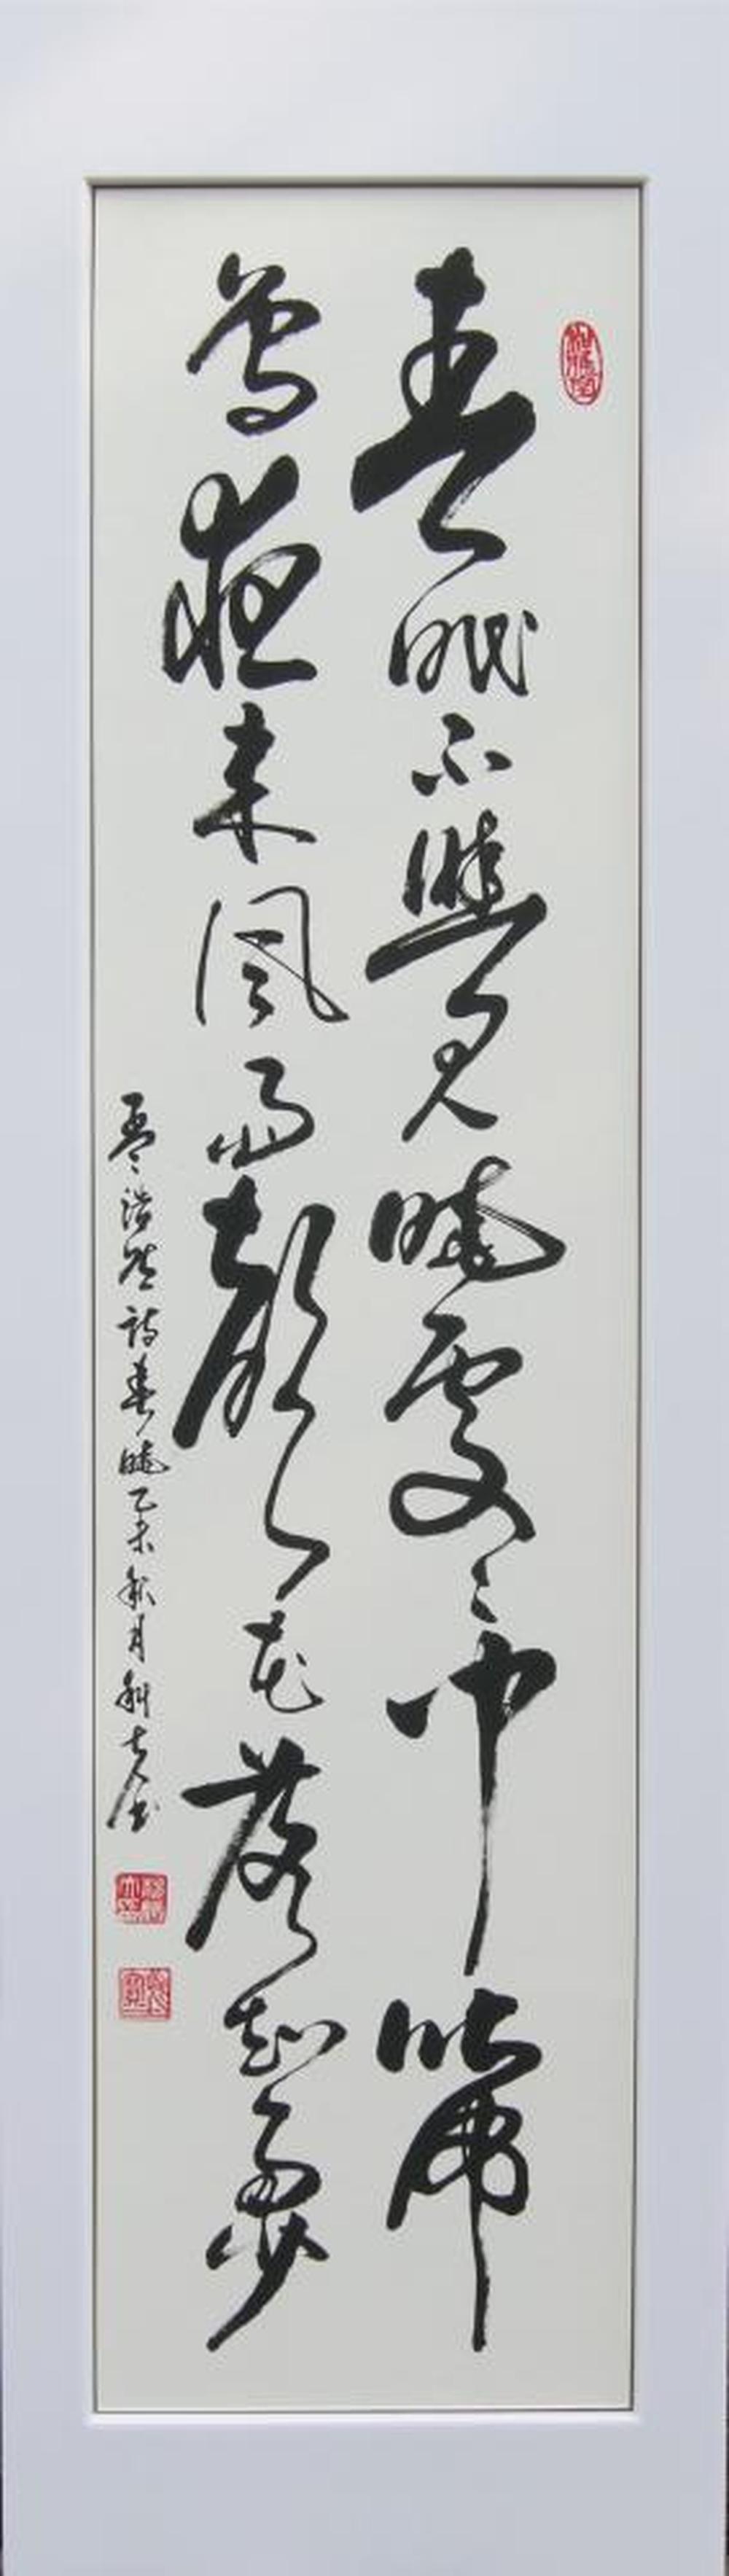 春眠不覺曉處々聞啼
鳥夜来風雨聲花落知多少
孟浩然詩春曉乙未秋月